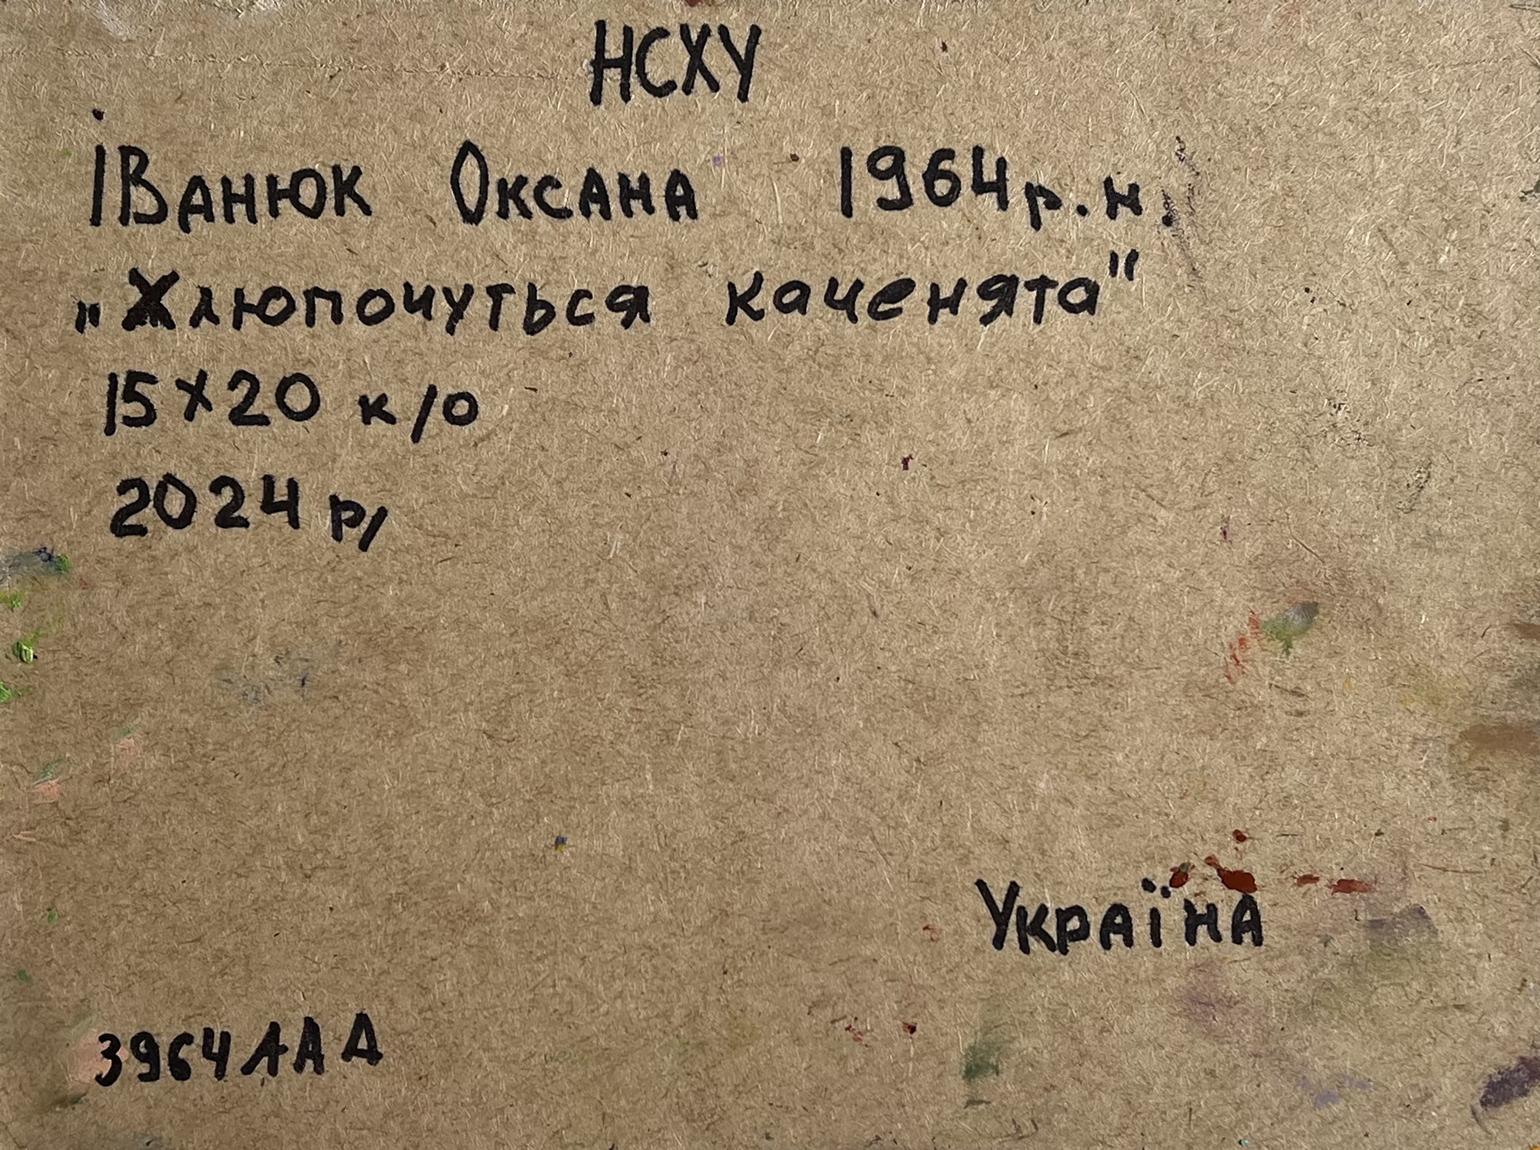 НСХУ
Іванюк Оксана 1964 р. н.
„Хлюпочуться каченята"
15х20 к/о
2024 р,
Україна
3964 ААД